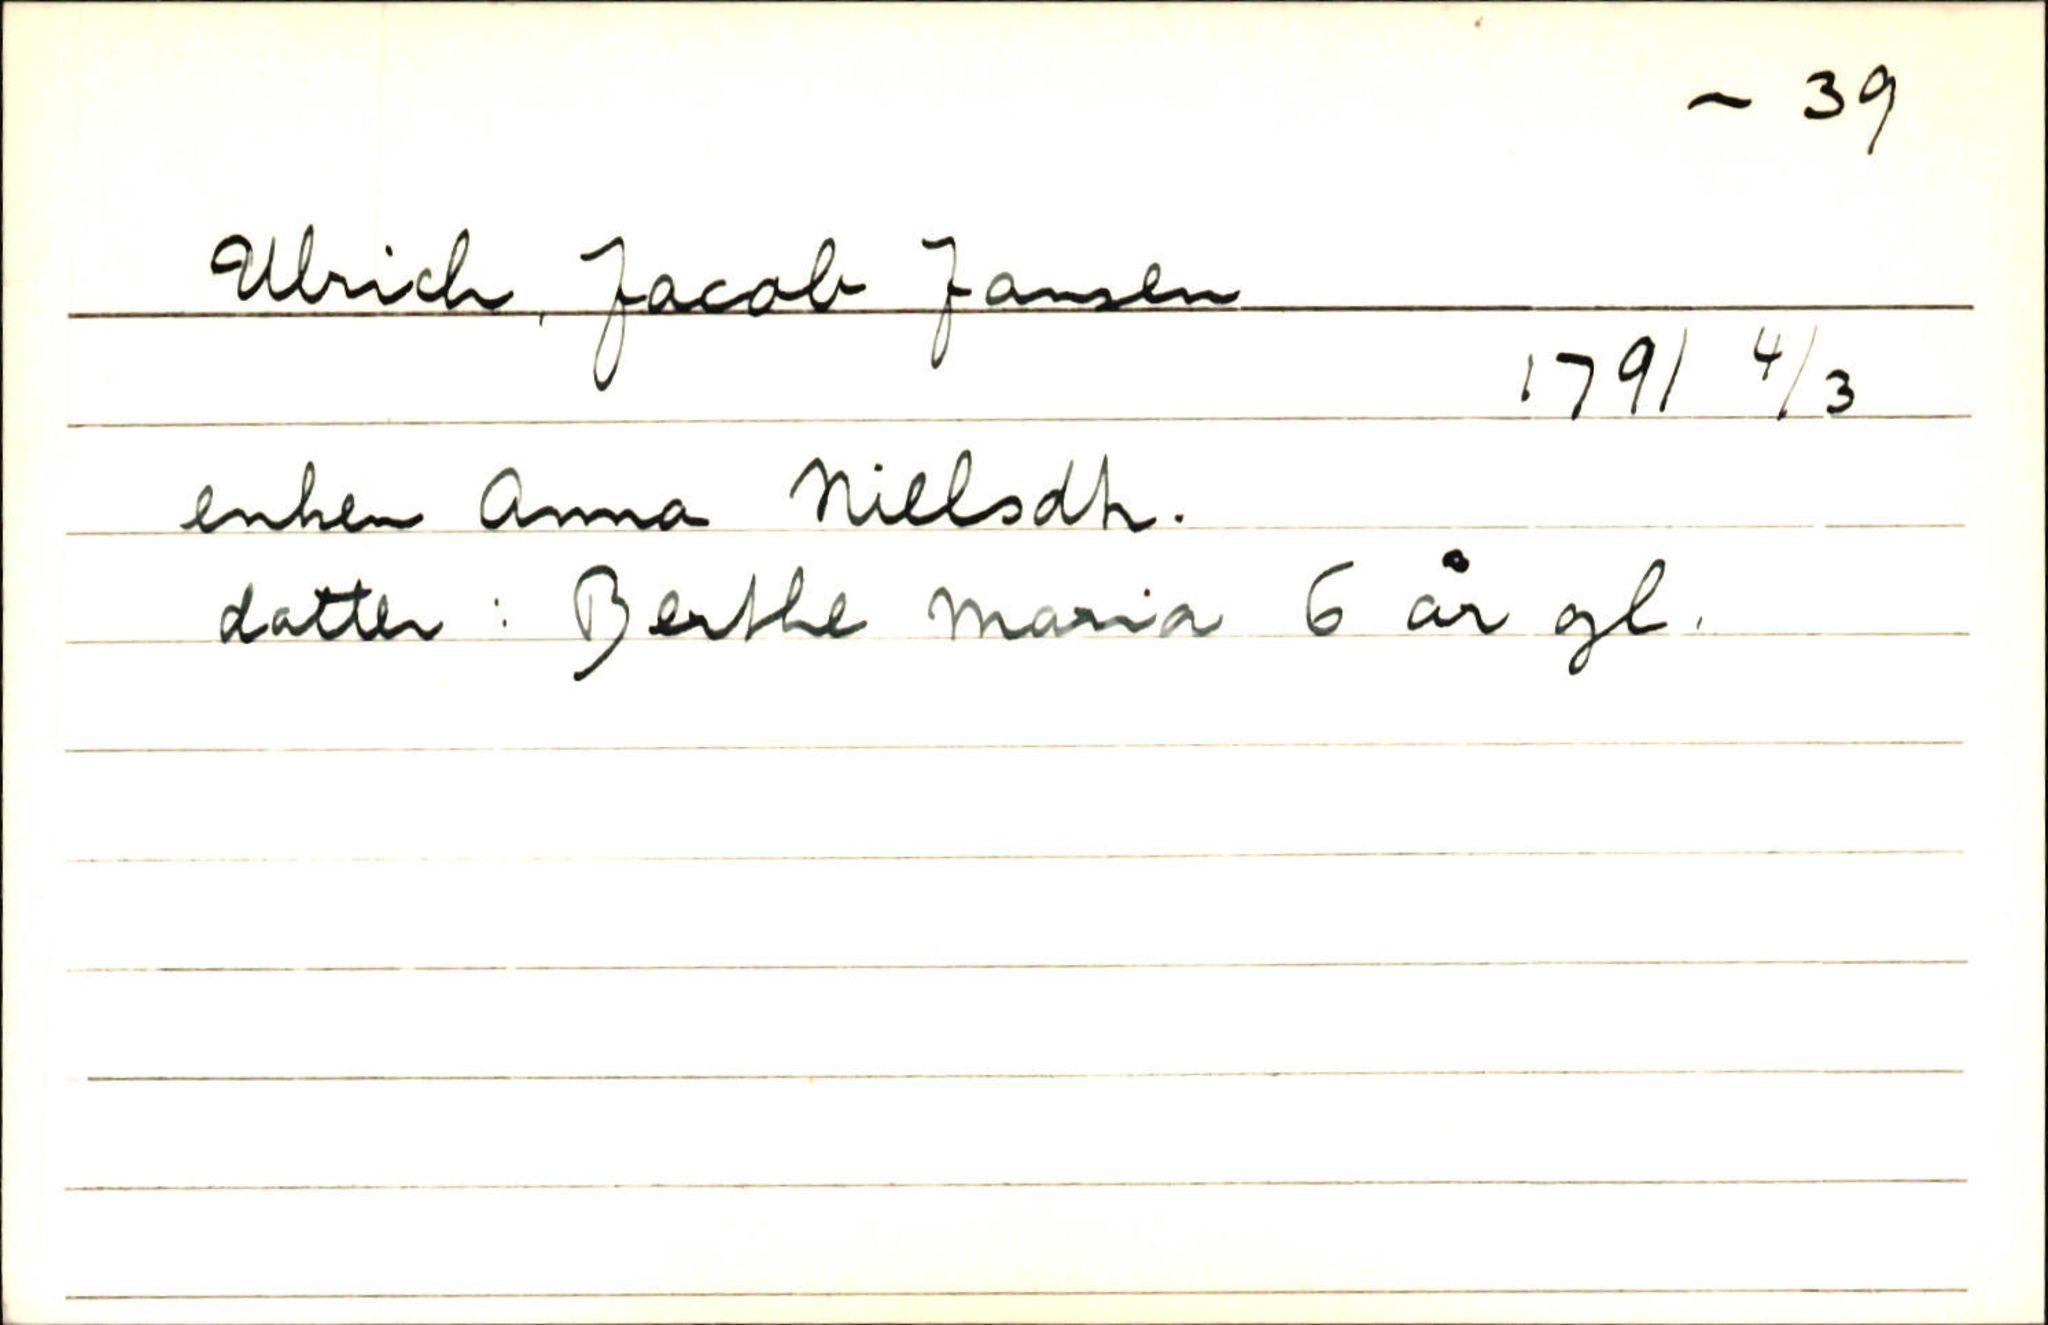 ~ 39
Ulrich, Jacob Jansen
1791 4/3
enken Anna Nielsdtr.
datter : Berthe Maria 6 år gl.